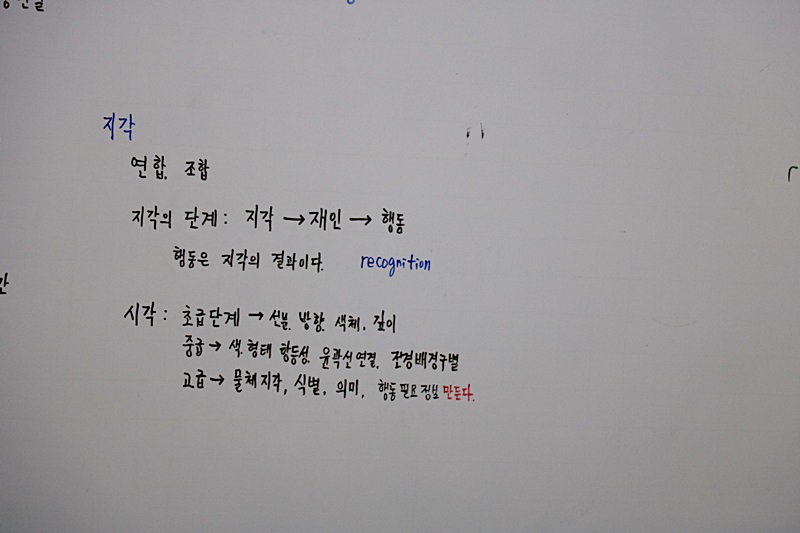 지각
연합. 조합
지각의 단계: 지각 → 재인 → 행동
행동은 지각의 결과이다. recognition
시각: 초급단계 → 선분. 방향. 색체. 깊이
중급 → 색. 형태 항등성. 윤곽선 연결. 전경배경구별
고급 → 물체지각, 식별, 의미, 행동 필요 정보 만든다.